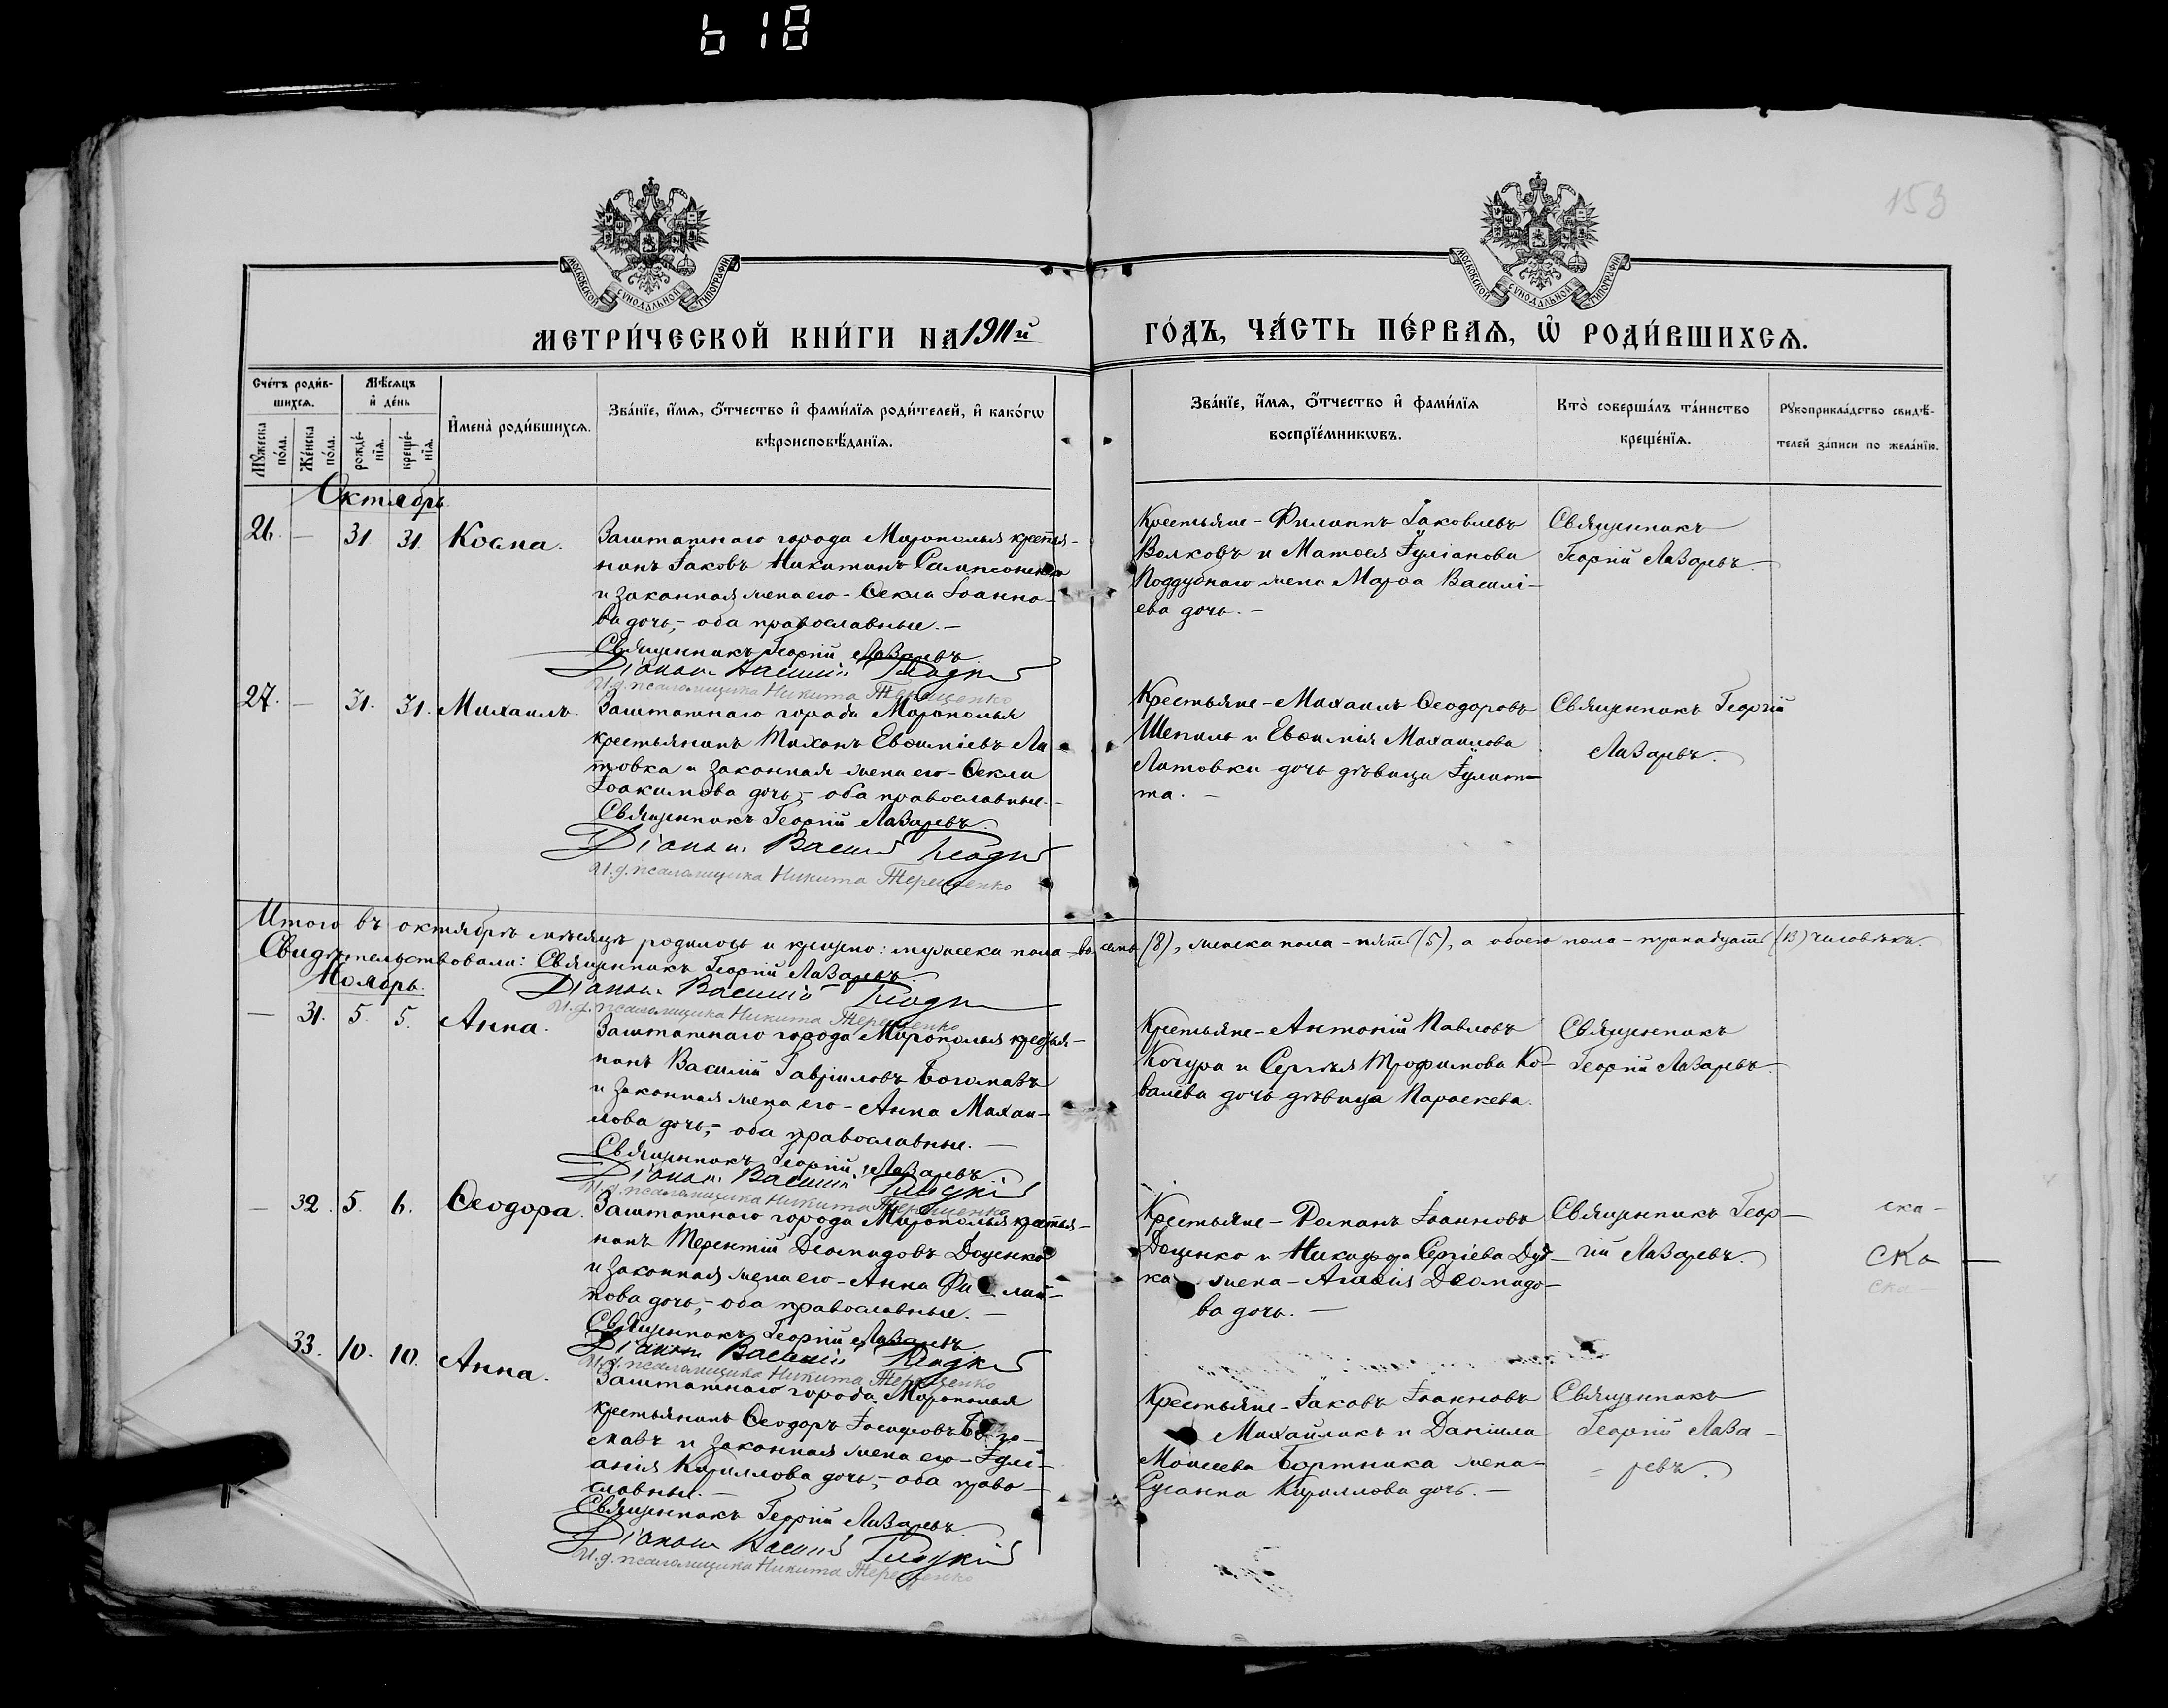 618
153
МОСКОВСКОЙ СѴНОДАЛЬНОЙ ТИПОГРАФІИ
МОСКОВСКОЙ СѴНОДАЛЬНОЙ ТИПОГРАФІИ
МЕТРИ́ЧЕСКОЙ КНИ́ГИ НА 1911й
ГО́ДЪ, ЧА́СТЬ ПЕ́РВАѦ, Ѡ҆ РОДИ́ВШИХСѦ.
Сче́тъ роди́в-
шихсѧ.
Мѣ́сѧцъ
и҆ де́нь
Мꙋ́жеска по́ла.
Же́нска по́ла.
рожде́-
нїѧ.
креще́-
нїѧ.
И҆мена̀ роди́вшихсѧ.
Зва́нїе, и҆́мѧ, ѻ҆́тчество и҆ фами́лїѧ роди́телей, и҆ како́гѡ
вѣроисповѣ́данїѧ.
Зва́нїе, и҆́мѧ, ѻ҆́тчество и҆ фами́лїѧ
воспрїе́мникѡвъ.
Кто̀ соверша́лъ та́инство
креще́нїѧ.
Рꙋкоприкла́дство свидѣ́-
телей за́писи по жела́нїю.
Октябрь.
26. — 31. 31. Косма.
Заштатнаго города Мирополья крестья-
нинъ Іаковъ Никитинъ Сампсоненко
и законная жена его - Ѳекла Іоанно-
ва дочь, - оба православные. —
Священникъ Георгій Лазаревъ
Діаконъ Василій Гладкій
И.д. псаломщика Никита Терещенко
Крестьяне - Филиппъ Іаковлевъ
Волковъ и Матѳея Іуліанова
Поддубнаго жена Марѳа Василі-
ева дочь. —
Священникъ
Георгій Лазаревъ
27. — 31. 31. Михаилъ.
Заштатнаго города Мирополья
крестьянинъ Тихонъ Евѳиміевъ Ли
товка и законная жена его - Ѳекла
Іоакимова дочь, - оба православные. -
Священникъ Георгій Лазаревъ.
Діаконъ Василій Гладкій
И.д. псаломщика Никита Терещенко
Крестьяне - Михаилъ Ѳеодоровъ
Шепиль и Евѳимія Михаилова
Литовки дочь дѣвица Іулит-
та. —
Священникъ Георгій
Лазаревъ.
Итого въ октябрѣ мѣсяцѣ родилось и крещено: мужеска пола - восемь (8), женска пола - пять (5), а обоего пола - тринадцать (13) человѣкъ.
Свидѣтельствовали: Священникъ Георгій Лазаревъ.
Діаконъ Василій Гладкій
И.д. псаломщика Никита Терещенко
Ноябрь.
— 31. 5. 5. Анна.
Заштатнаго города Мирополья крестья-
нинъ Василій Гавріиловъ Богомазъ
и законная жена его - Анна Михаи-
лова дочь, - оба православные. —
Священникъ Георгій Лазаревъ
Діаконъ Василій Гладкій
И.д. псаломщика Никита Терещенко
Крестьяне - Антоній Павловъ
Кочура и Сергѣя Трофимова Ко-
валева дочь дѣвица Параскева.
Священникъ
Георгій Лазаревъ.
— 32. 5. 6. Ѳеодора.
Заштатнаго города Мирополья крестья-
нинъ Терентій Діомидовъ Доценко
и законная жена его - Анна Фи лип-
пова дочь, - оба православные. —
Священникъ Георгій Лазаревъ
Діаконъ Василій Гладкій
И.д. псаломщика Никита Терещенко
Крестьяне - Романъ Іоанновъ
Доценко и Никифора Сергіева Дуд-
ка жена - Агаѳія Діомидо-
ва дочь. —
Священникъ Геор-
гій Лазаревъ.
ска -
ска —
ска -
33. 10. 10. Анна.
Заштатнаго города Мирополья
крестьянинъ Ѳеодоръ Іосифовъ Бого-
мазъ и законная жена его - Іулі-
анія Кириллова дочь, - оба право-
славные. —
Священникъ Георгій Лазаревъ.
Діаконъ Василій Гладкій
И.д. псаломщика Никита Терещенко
Крестьяне - Іаковъ Іоанновъ
Михайликъ и Даніила
Моисеева Бортника жена-
Сусанна Кириллова дочь. —
Священникъ
Георгій Лаза-
ревъ.